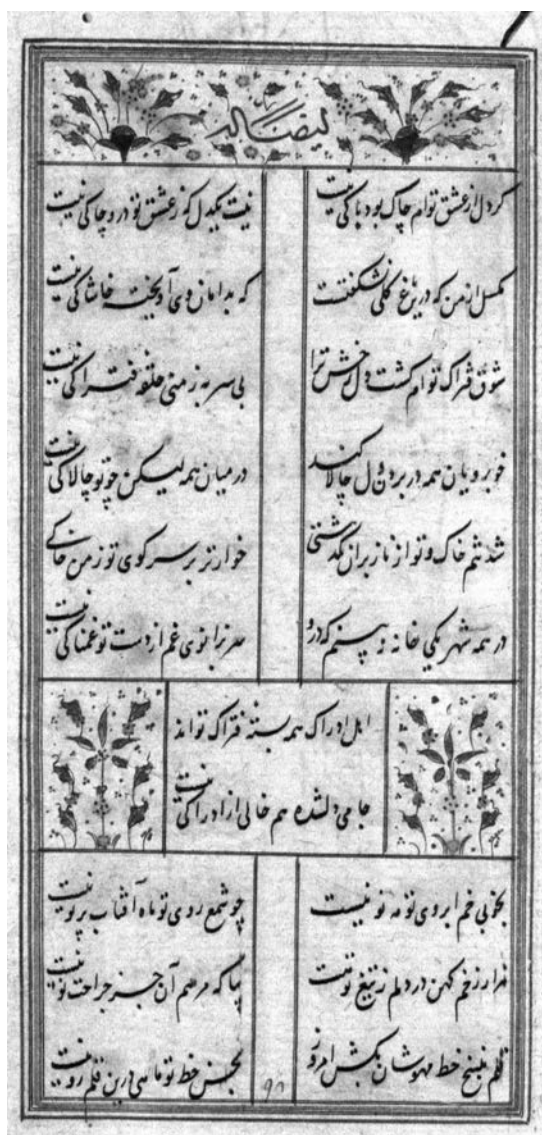 ایضاً له
گر دل از عشق توام چاک بود باکی نیست نیست یکدل که ز عشق تو درو چاکی نیست
مگسل از من که در باغ گلی نشکفتست که بدامان وی آویخته خاشاکی نیست
شوق فتراک توام کشت ولی رخش ترا بی سر به ز منی حلقه فتراکی نیست
خوبرویان همه در بردن دل چالاکند در میان همه لیکن چو تو چالاکی نیست
شدنم خاک و تو از ناز بران نگذشتی خوارتر بر سر کوی تو ز من خاکی
در همه شهر یکی خانه نبینم که درو سر بزانوی غم از دست تو غمناکی نیست
اهل ادراک همه بسته فتراک تواند
جامی دلشده هم خالی از ادراکی نیست
بخوبی خم ابروی تو مه نو نیست چو شمع روی تو ماه آفتاب پرتو نیست
هزار زخم کهن در دلم ز تیغ تو نیست بیا که مرهم آن جز جراحت نو نیست
قلم بنسخ خط مهوشان بکش امروز بحسن خط تو ماهی درین قلمرو نیست